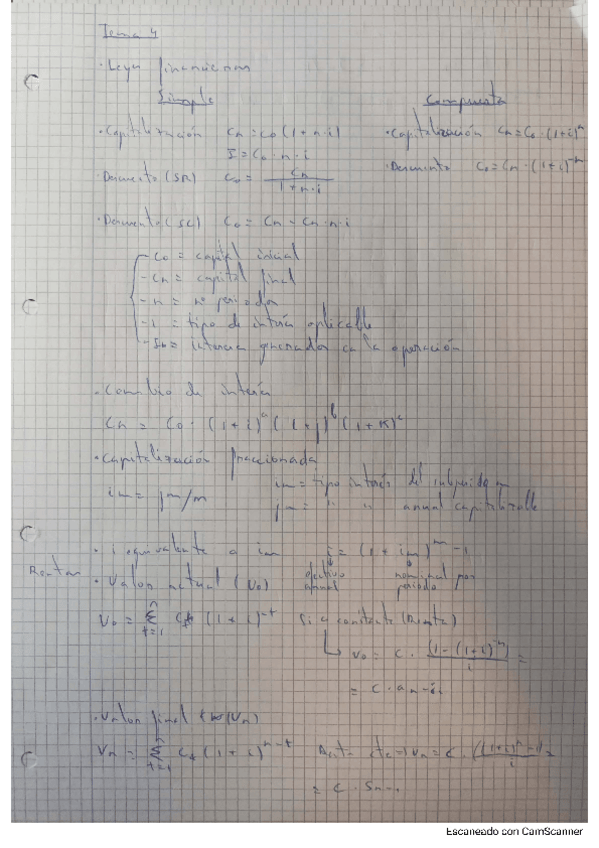 Tema 4
· Leyes financieras
Simple
Compuesta
· Capitalización Cn = C0 (1 + n · i)
I = C0 · n · i
· Capitalización Cn = C0 · (1+i)^n
· Descuento (SR) C0 = Cn / (1 + n · i)
· Descuento C0 = Cn · (1+i)^-n
· Descuento (SC) C0 = Cn - Cn · n · i
- C0 = capital inicial
- Cn = capital final
- n = nº periodos
- i = tipo de interés aplicable
intereses generados en la operación
· Cambio de interés
Cn = C0 · (1+i)^a (1+j)^b (1+k)^c
· Capitalización fraccionada
im = jm/m
im = tipo interés del subperiodo m
jm = " " anual capitalizable
· i equivalente a im i = (1 + im)^m - 1
efectivo anual
nominal por periodo
Rentas
· Valor actual (V0)
V0 = Σ t=1 n Ct (1+i)^-t
Si c constante (Renta)
V0 = C · (1-(1+i)^-n)/i =
= C · an¬i
· Valor final (Vn)
Vn = Σ t=1 n Ct (1+i)^n-t
cte → Vn = C · ((1+i)^n - 1)/i =
= C · Sn¬i
Escaneado con CamScanner